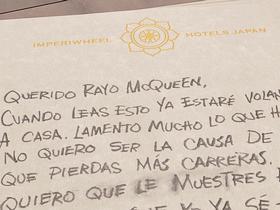 IMPERIWHEEL HOTELS JAPAN
QUERIDO RAYO McQUEEN,
CUANDO LEAS ESTO YA ESTARÉ VOLAN
A CASA. LAMENTO MUCHO LO QUE H
NO QUIERO SER LA CAUSA DE
QUE PIERDAS MÁS CARRERAS.
QUIERO QUE LE MUESTRES
YA SÉ